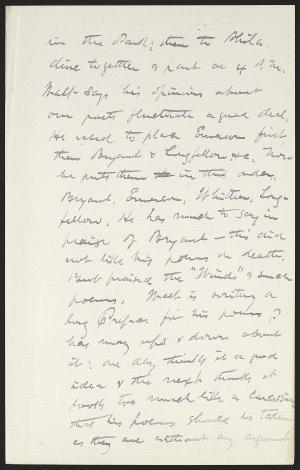 in the Park; then to Phila.
dine together & part at 4 P.M.
Walt says his opinions about
our poets fluctuate a good deal.
He used to place Emerson first,
then Bryant & Longfellow &c. Now
he puts them in this order,
Bryant, Emerson, Whittier, Long-
fellow. He has much to say in
praise of Bryant — tho did
not like his poems on death.
But praised the "Winds" & such
poems. Walt is writing a
long Preface for his poems;
has many ups & downs about
it; one day thinks it a good
idea & the next thinks it
looks too much like a
that his poems should be taken
as they are without any argument